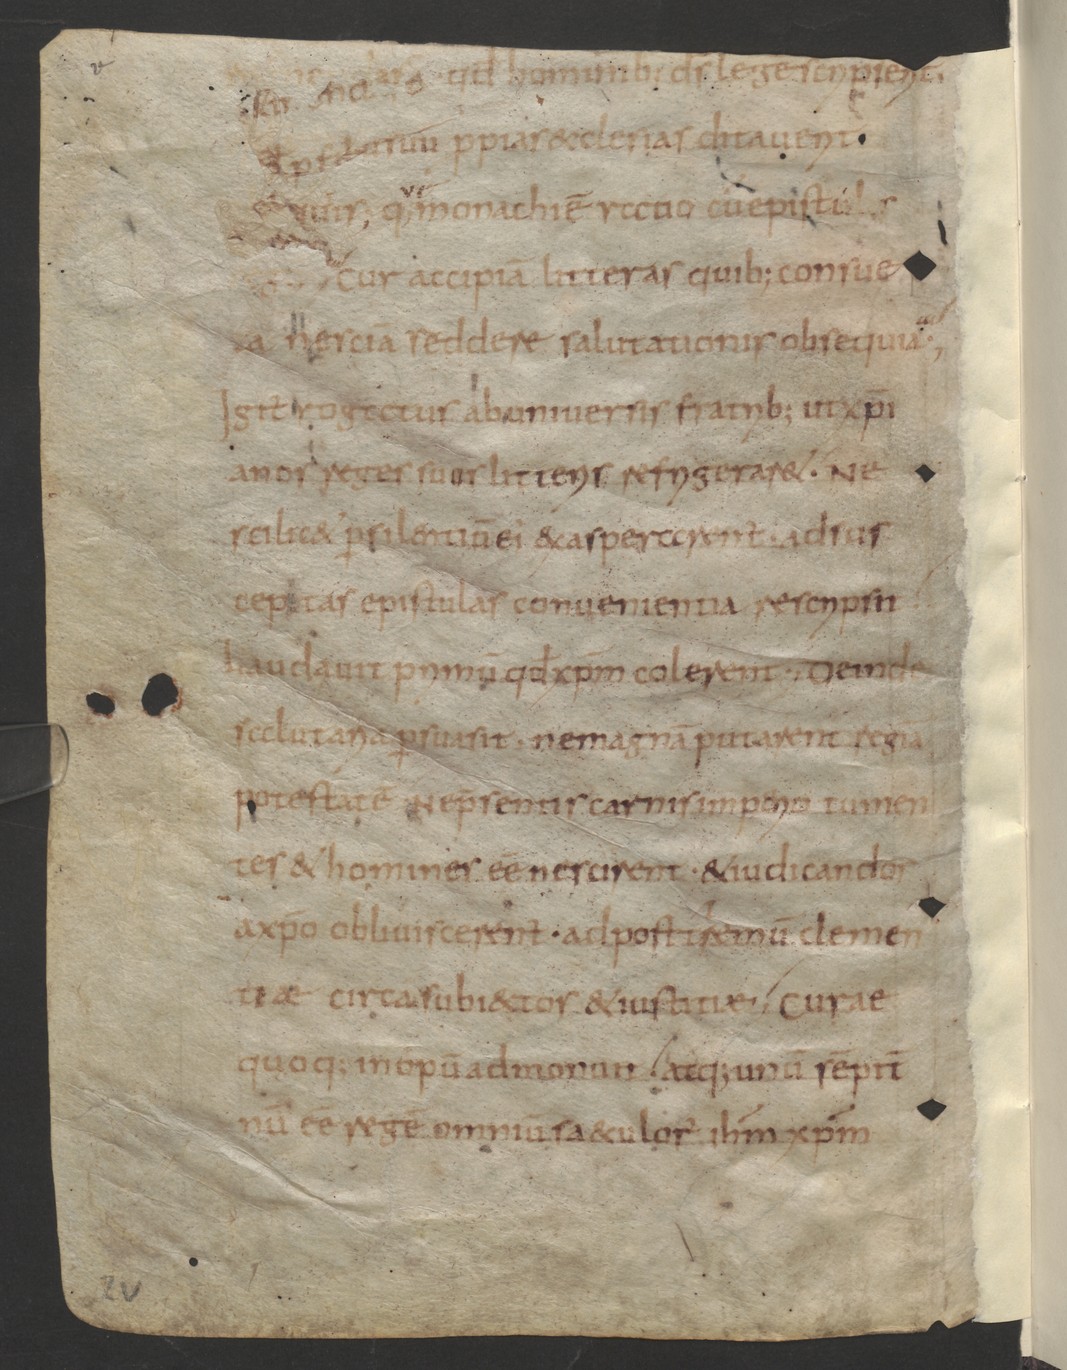 v
qđ hominib; dſ lege ſcripſerit.
ppiaſ æccleſiaſ ditaverit.
q; monachi ē ractio cū epiſtul
Cur accipiā litteraſ quib; conſue
ta neſciā reddere ſalutationiſ obſequia.,
Igit̄ rogatur ab univerſiſ fratrib; ut xp̄i
anoſ regeſ ſuiſ litteriſ refrigeraret. Ne
ſcilicet p̄ ſilentiū ei exaſperarent̄. ad ſuſ
ceptaſ epiſtulaſ convenientia reſcripſit
laudavit primū qđ xp̄m colerent. Deinde
ſalutaria p̄ſuaſit. ne magnā putarent regiā
poteſtatē Ne p̄ſentiſ carniſ imperio tumen
teſ & homineſ eē neſcirent. & iudicandoſ
a xp̄o obliviſcerent̄. ad poſtremū clemen
tiæ circa ſubiectoſ & iuſtitiæ. Curae
quoq; inopū admonuit. atq; unū ſēpit̄
nū eē regē omniū ſaeculor̄ ihm̄ xp̄m
2v